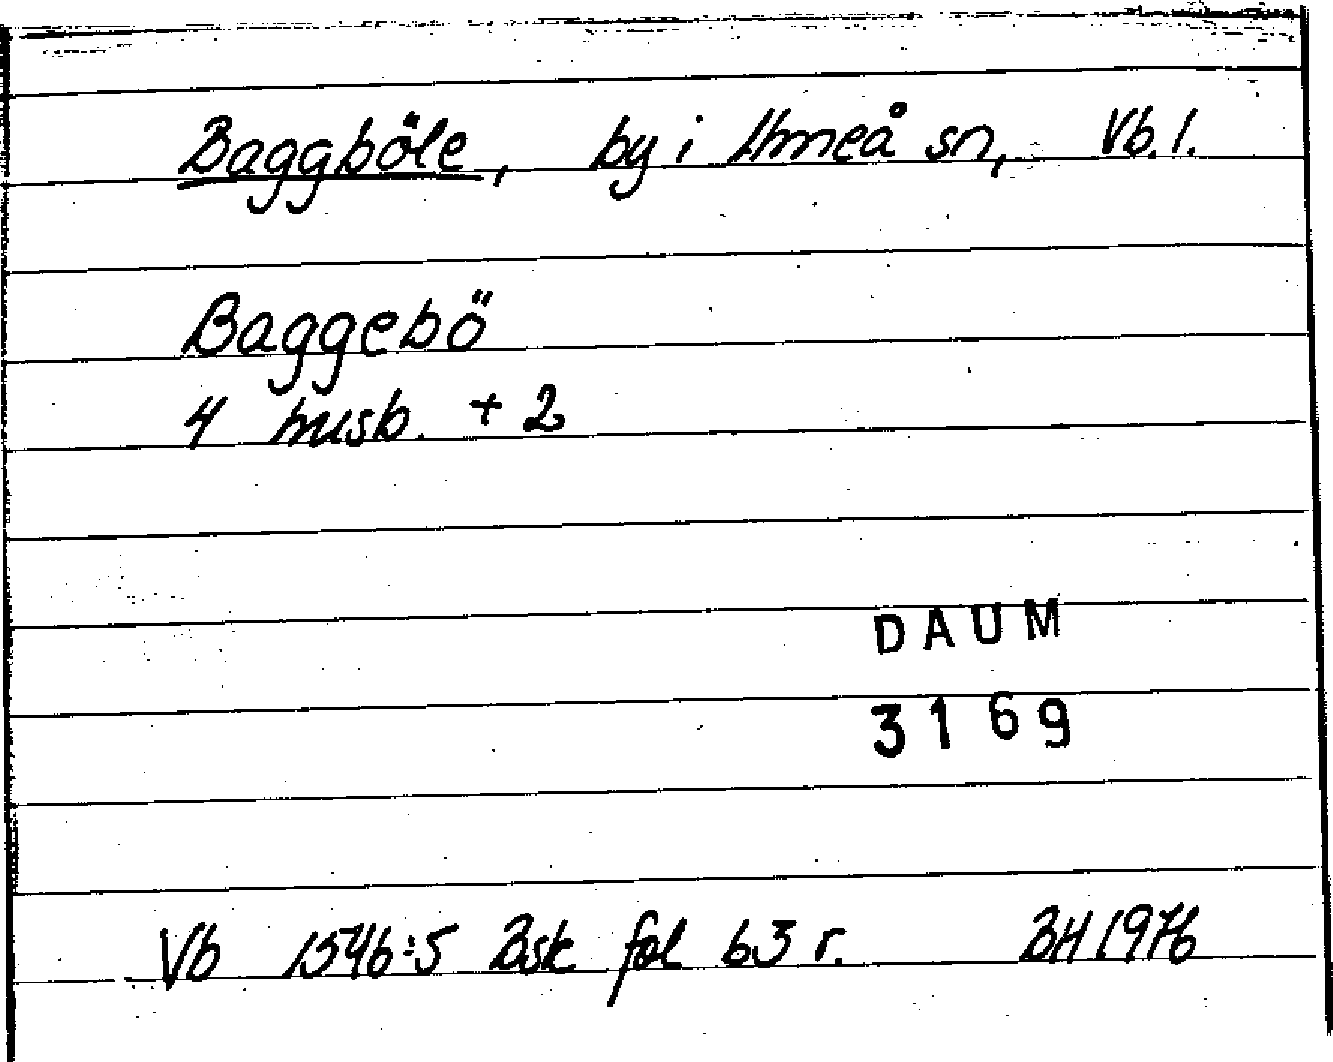 Baggböle, by i Umeå sn, Vb. l.
Baggebö
4 husb. + 2
DAUM
3169
Vb 1546:5 Bsk fol 63 r. BH 1976